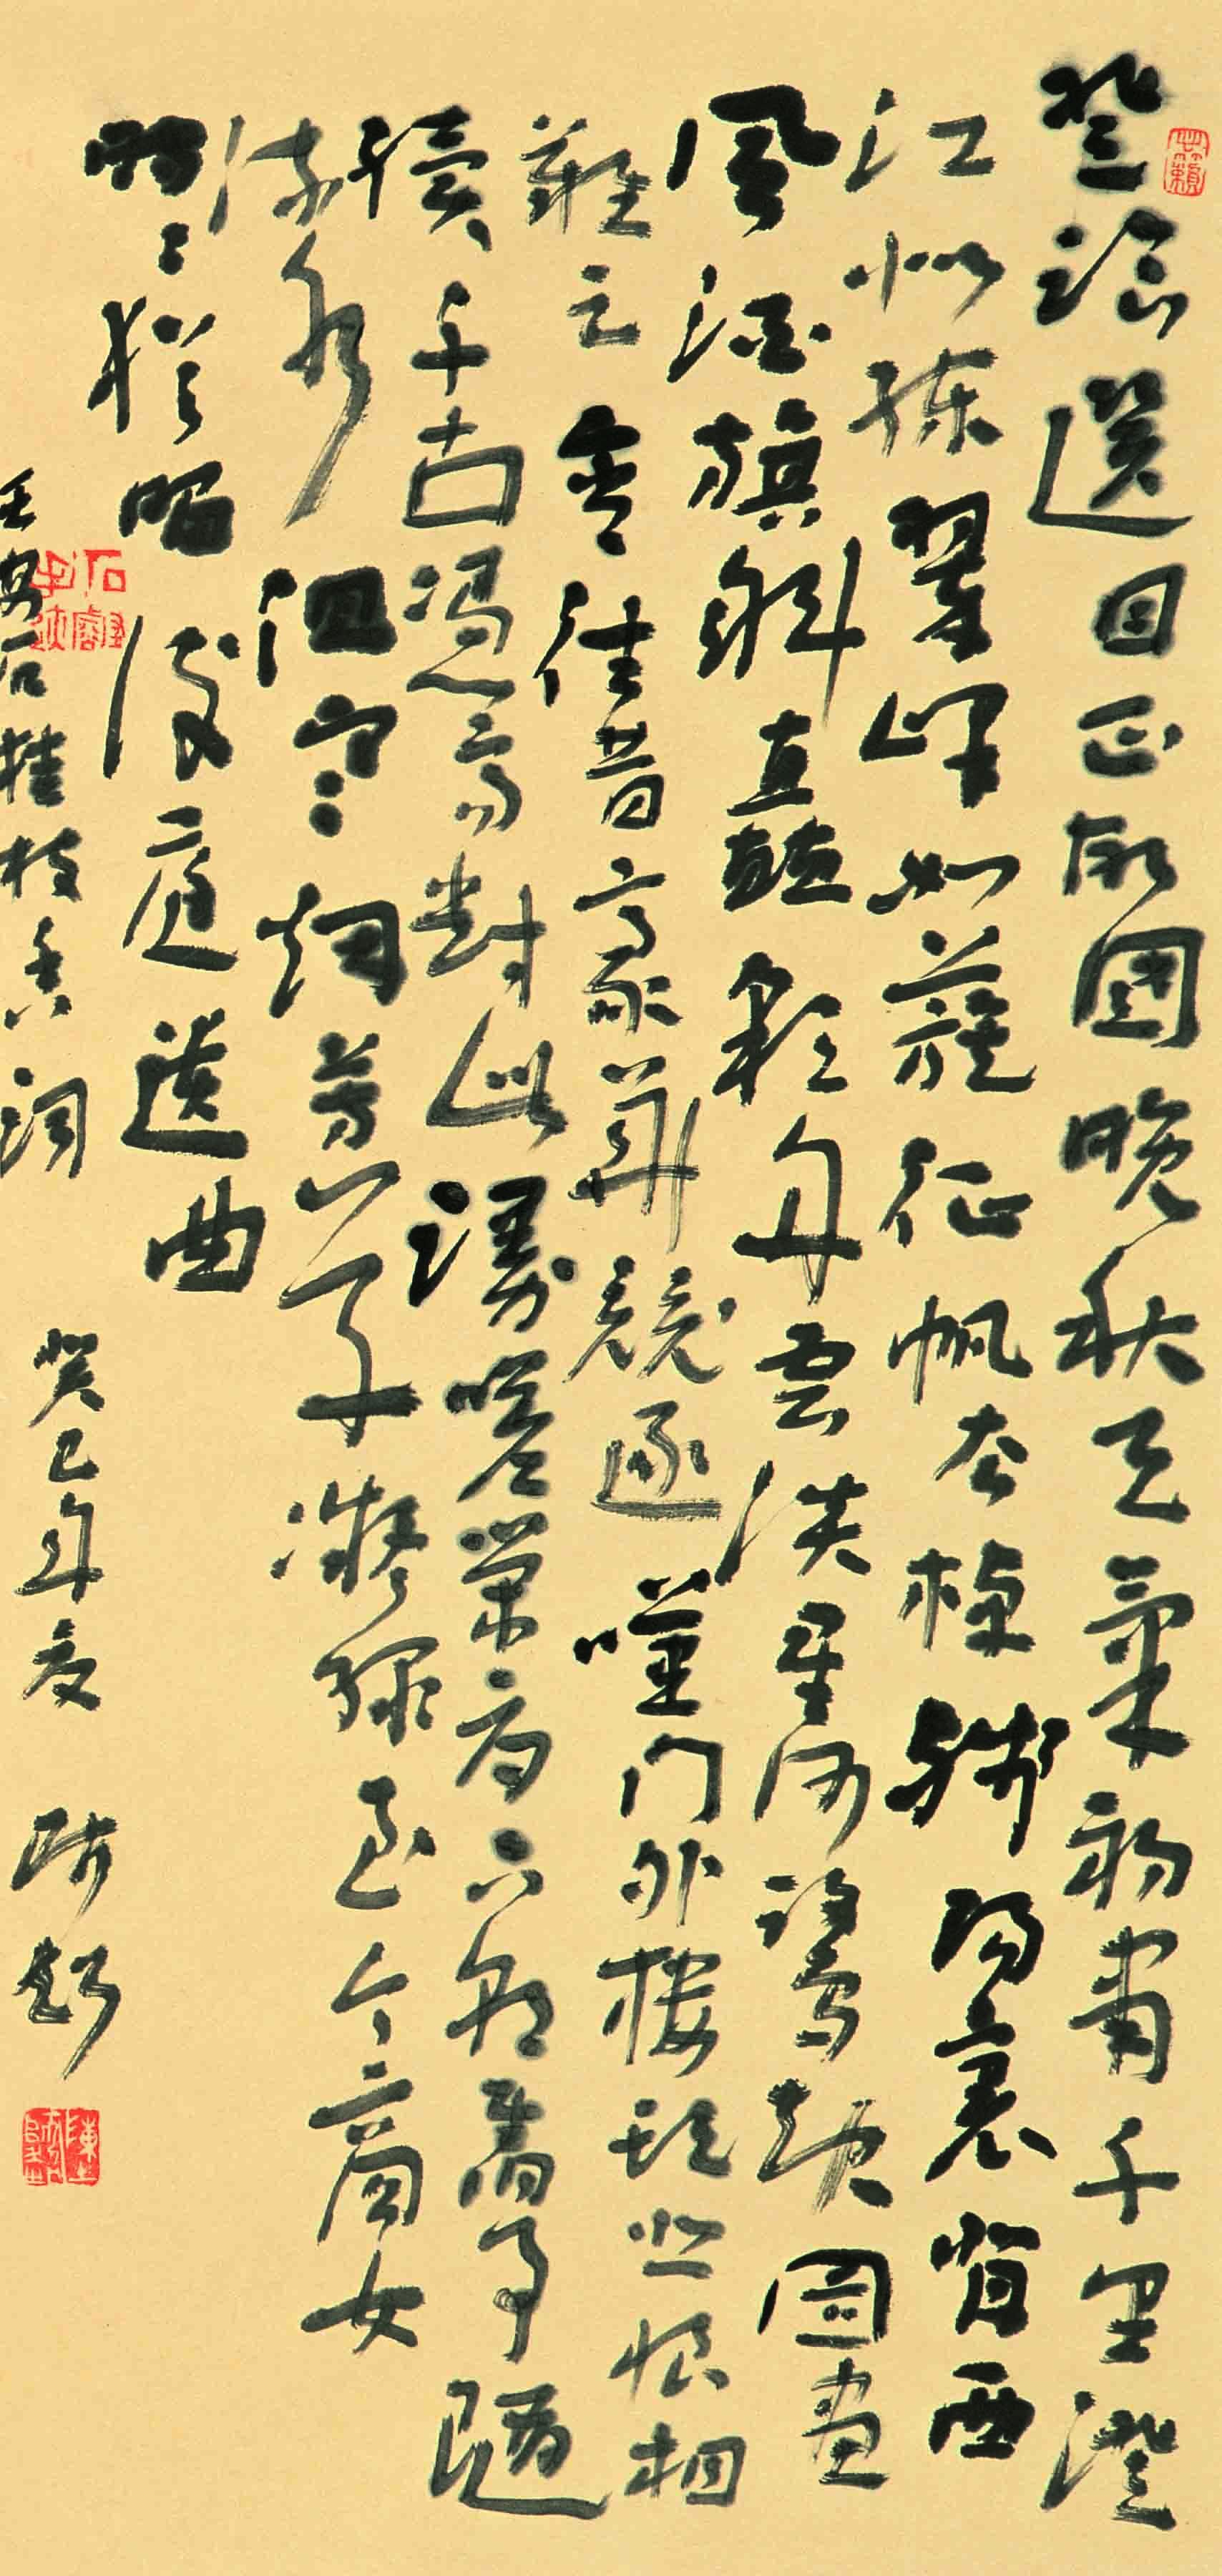 登臨送目正故國晚秋天氣初肅千里澄
江似練翠峰如簇征帆去棹殘陽裏背西
風酒旗斜矗彩舟雲淡星河鷺起圖畫
難足念往昔豪華競逐嘆門外樓頭悲恨相
續千古憑高對此謾嗟榮辱六朝舊事隨
流水但寒煙芳草凝綠至今商女
時時猶唱後庭遺曲
王安石桂枝香詞 癸巳年夏